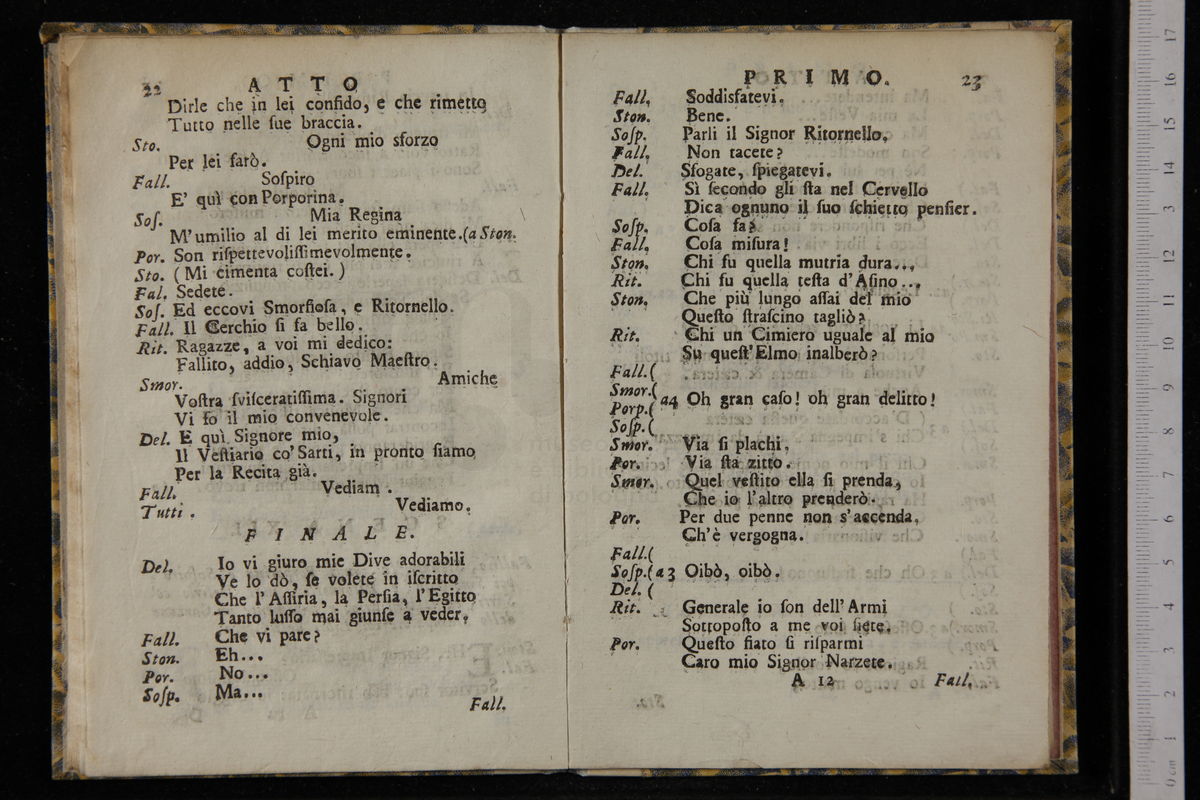 22 ATTO
Dirle che in lei confido, e che rimetto
Tutto nelle sue braccia.
Sto. Ogni mio sforzo
Per lei farò.
Fall. Sospiro
E' quì con Porporina.
Sos. Mia Regina
M'umilio al di lei merito eminente. (a Ston.
Por. Son rispettevolissimevolmente.
Sto. (Mi cimenta costei.)
Fal. Sedete.
Sos. Ed eccovi Smorfiosa, e Ritornello.
Fall. Il Cerchio si fa bello.
Rit. Ragazze, a voi mi dedico:
Fallito, addio, Schiavo Maestro.
Smor. Amiche
Vostra svisceratissima. Signori
Vi fo il mio convenevole.
Del. E quì Signore mio,
Il Vestiario co' Sarti, in pronto siamo
Per la Recita già.
Fall. Vediam.
Tutti. Vediamo.
FINALE.
Del. Io vi giuro mie Dive adorabili
Ve lo dò, se volete in iscritto
Che l'Assiria, la Persia, l'Egitto
Tanto lusso mai giunse a veder.
Fall. Che vi pare?
Ston. Eh...
Por. No...
Sosp. Ma...
Fall.
PRIMO. 23
Fall. Soddisfatevi.
Ston. Bene.
Sosp. Parli il Signor Ritornello.
Fall. Non tacete?
Del. Sfogate, spiegatevi.
Fall. Sì secondo gli sta nel Cervello
Dica ognuno il suo schietto pensier.
Sosp. Cosa fa?
Fall. Cosa misura!
Ston. Chi fu quella mutria dura...
Rit. Chi fu quella testa d'Asino...
Ston. Che più lungo assai del mio
Questo strascino tagliò?
Rit. Chi un Cimiero uguale al mio
Su quest'Elmo inalberò?
Fall.(
Smor.(
Porp.( a4 Oh gran caso! oh gran delitto!
Sosp.(
Smor. Via si plachi,
Por. Via sta zitto.
Smor. Quel vestito ella si prenda,
Che io l'altro prenderò.
Por. Per due penne non s'accenda,
Ch'è vergogna.
Fall.(
Sosp.( a3 Oibò, oibò.
Del. (
Rit. Generale io son dell'Armi
Sottoposto a me voi siete.
Por. Questo fiato si risparmi
Caro mio Signor Narzete.
A 12 Fall.